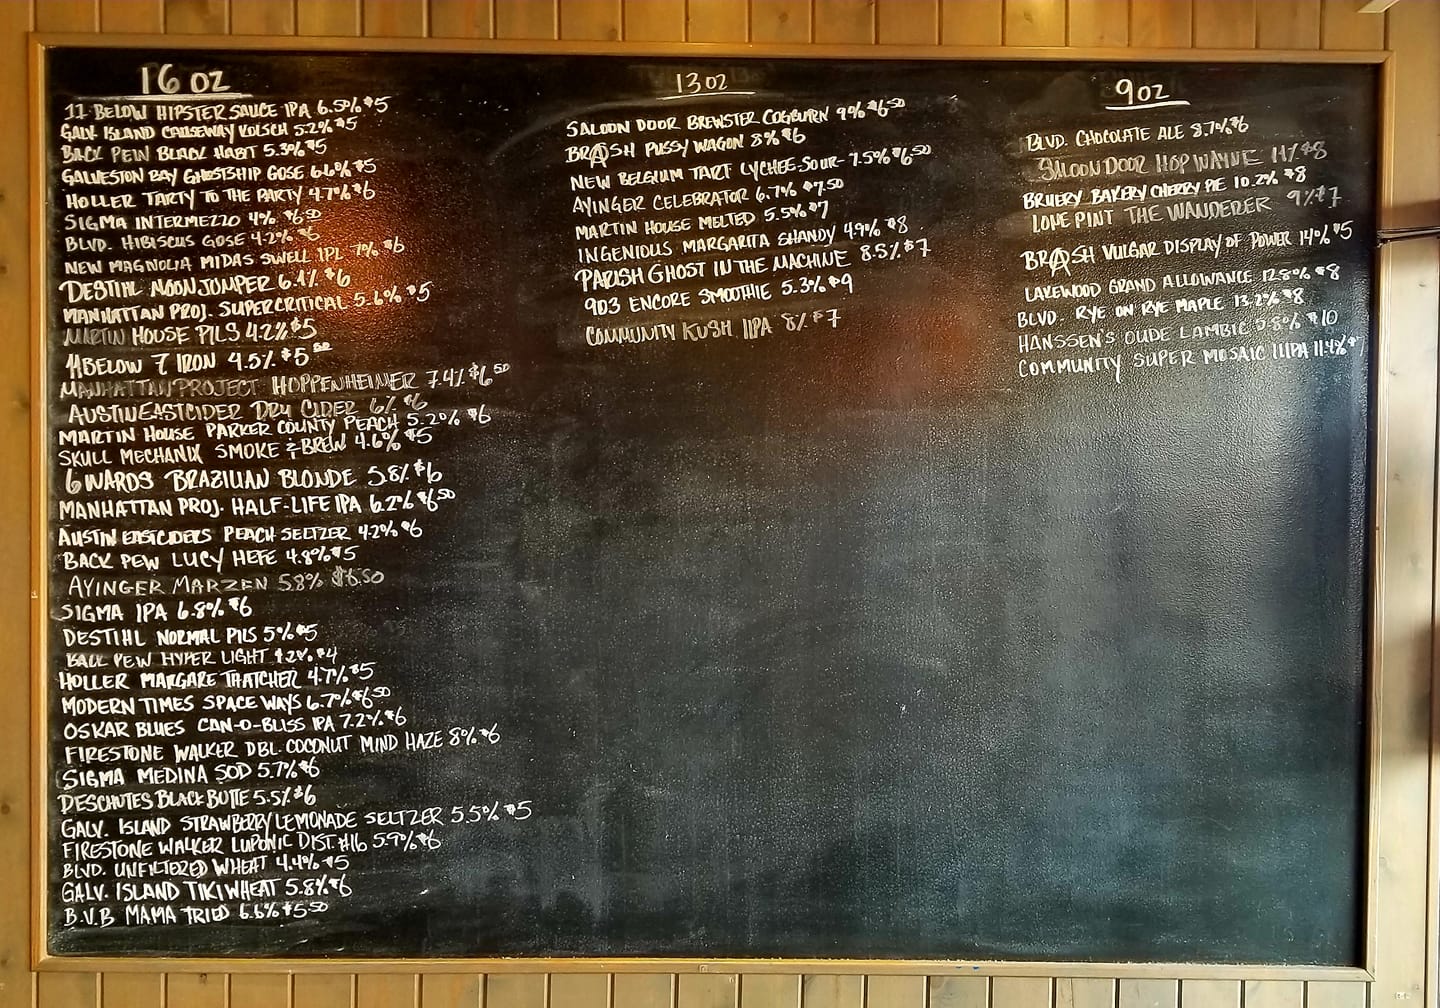 16 OZ
11 BELOW HIPSTER SAUCE IPA 6.5% $5
GALV. ISLAND CAUSEWAY KOLSCH 5.2% $5
BACK PEW BLACK HABIT 5.3% $5
GALVESTON BAY GHOSTSHIP GOSE 6.6% $5
HOLLER TARTY TO THE PARTY 4.7% $6
SIGMA INTERMEZZO 4% $6.50
BLVD. HIBISCUS GOSE 4.2% $6
NEW MAGNOLIA MIDAS SWELL IPL 7% $6
DESTIHL MOONJUMPER 6.1% $6
MANHATTAN PROJ. SUPERCRITICAL 5.6% $5
MARTIN HOUSE PILS 4.2% $5
11BELOW 7 IRON 4.5% $5.50
MANHATTAN PROJECT HOPPENHEIMER 7.4% $6.50
AUSTIN EASTCIDER DRY CIDER 6% $6
MARTIN HOUSE PARKER COUNTY PEACH 5.20% $6
SKULL MECHANIX SMOKE & BREW 4.6% $5
6 WARDS BRAZILIAN BLONDE 5.8% $6
MANHATTAN PROJ. HALF-LIFE IPA 6.2% $6.50
AUSTIN EASTCIDERS PEACH SELTZER 4.2% $6
BACK PEW LUCY HEFE 4.8% $5
AYINGER MARZEN 5.8% $6.50
SIGMA IPA 6.8% $6
DESTIHL NORMAL PILS 5% $5
BACK PEW HYPER LIGHT $4
HOLLER MARGARE THATCHER 4.7% $5
MODERN TIMES SPACE WAYS 6.7% $6.50
OSKAR BLUES CAN-O-BLISS IPA 7.2% $6
FIRESTONE WALKER DBL. COCONUT MIND HAZE 8% $6
SIGMA MEDINA SOD 5.7% $6
DESCHUTES BLACK BUTTE 5.5% $6
GALV. ISLAND STRAWBERRY LEMONADE SELTZER 5.5% $5
FIRESTONE WALKER LUPONIC DIST. #16 5.9% $6
BLVD. UNFILTERED WHEAT 4.4% $5
GALV. ISLAND TIKI WHEAT 5.8% $6
B.V.B MAMA TRIED 6.6% $5.50
13 OZ
SALOON DOOR BREWSTER COGBURN 9% $6.50
BRASH PUSSY WAGON 8% $6
NEW BELGIUM TART LYCHEE-SOUR 7.5% $6.50
AYINGER CELEBRATOR 6.7% $7.50
MARTIN HOUSE MELTED 5.5% $7
INGENIOUS MARGARITA SHANDY 4.9% $8
PARISH GHOST IN THE MACHINE 8.5% $7
903 ENCORE SMOOTHIE 5.3% $9
COMMUNITY KUSH IIPA 8% $7
9 OZ
BLVD. CHOCOLATE ALE 8.7% $6
SALOON DOOR HOP WAYNE 11% $8
BRUERY BAKERY CHERRY PIE 10.2% $8
LONE PINT THE WANDERER 9% $7
BRASH VULGAR DISPLAY OF POWER 14% $5
LAKEWOOD GRAND ALLOWANCE 12.8% $8
BLVD. RYE ON RYE MAPLE 13.2% $8
HANSSEN'S OUDE LAMBIC 5.8% $10
COMMUNITY SUPER MOSAIC IIIPA 11.4% $7